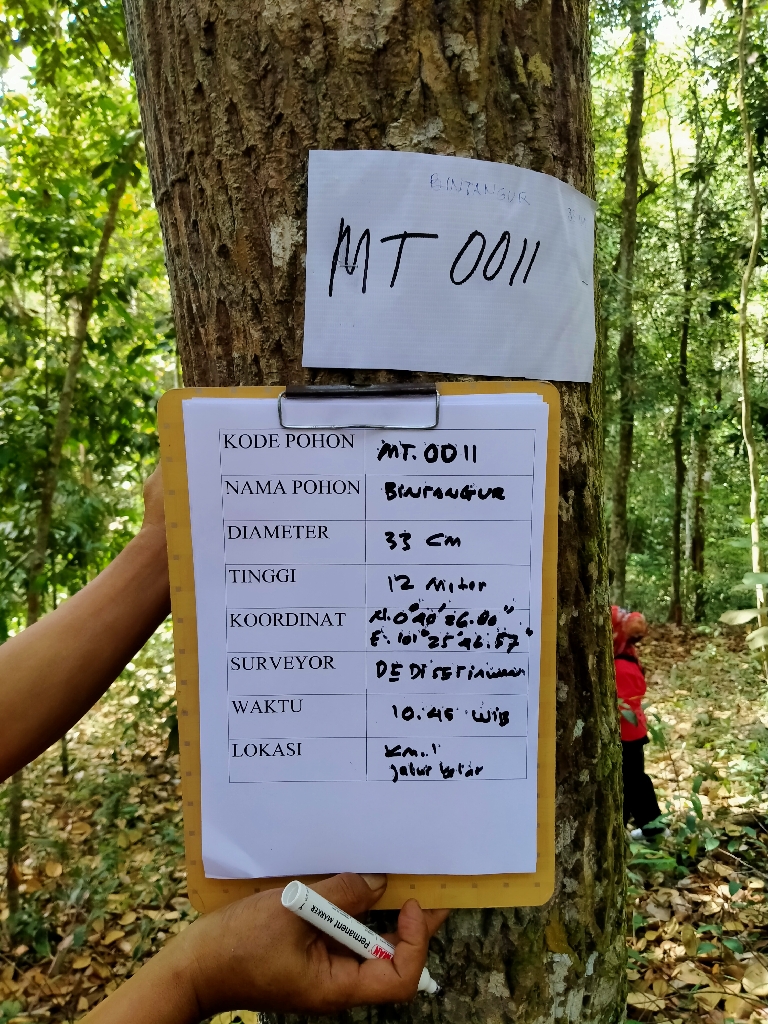 BINTANGUR
MT 0011
KODE POHON MT. 0011
NAMA POHON BINTANGUR
DIAMETER 33 CM
TINGGI 12 Meter
KOORDINAT N. 0°40' 26.80"
E. 101°25' 46.57"
SURVEYOR DEDI SETIAWAN
WAKTU 10.45 WIB
LOKASI KM.1
jalur
Permanent MARKER